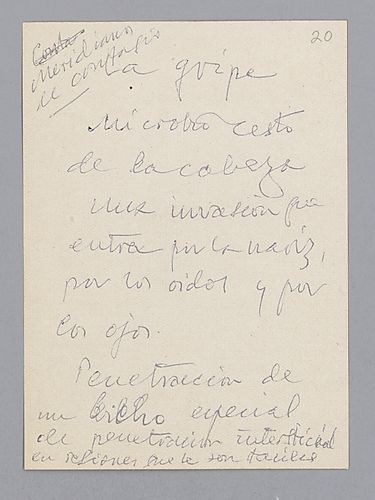 20
Meridiano
de contagio
La gripe
Microbio cesto
de la cabeza
una invasión que
entra por la nariz,
por los oidos y por
los ojos.
Penetración de
un bicho especial
de penetracion intersticial
en que le son